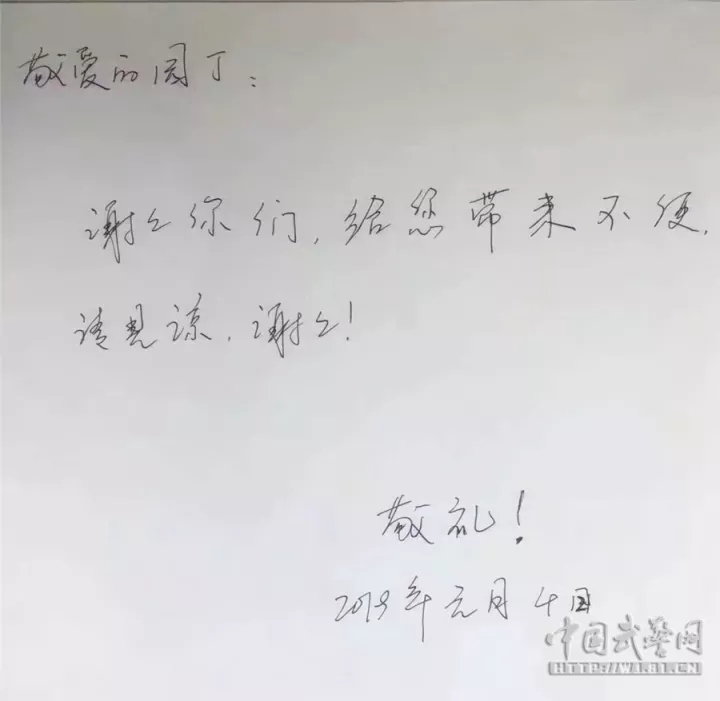 敬爱的园丁：
谢谢你们，给您带来不便，
请见谅，谢谢！
敬礼！
2019年元月4日
中国武警网
HTTP://WJ.81.CN